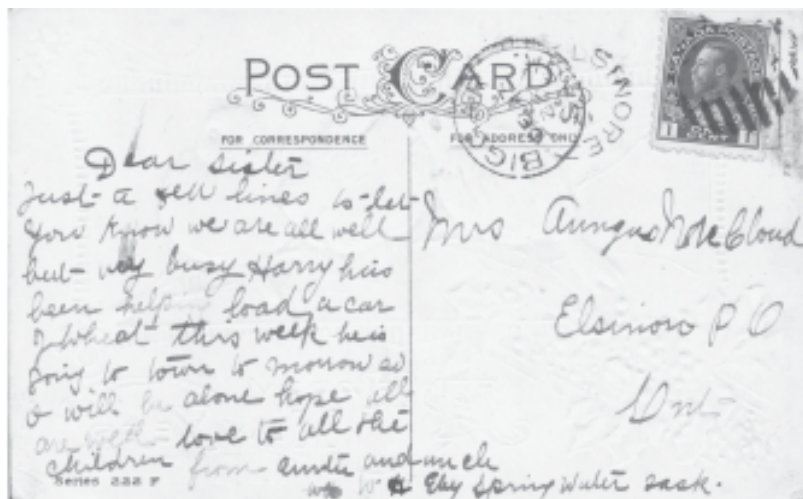 POST CARD
FOR CORRESPONDENCE
FOR ADDRESS ONLY
ELSINORE
BIG
CANADA POSTAGE
1 CENT 1
Dear Sister
Just a few lines to let
you know we are all well
but very busy Harry has
been helping load a car
of wheat this week he is
going to town to morrow so
I will be alone hope all
are well love to all the
children from auntie and uncle
W H Eby Spring Water Sask.
Series 222 F
Mrs Aungus McCloud
Elsinore P O
Ont